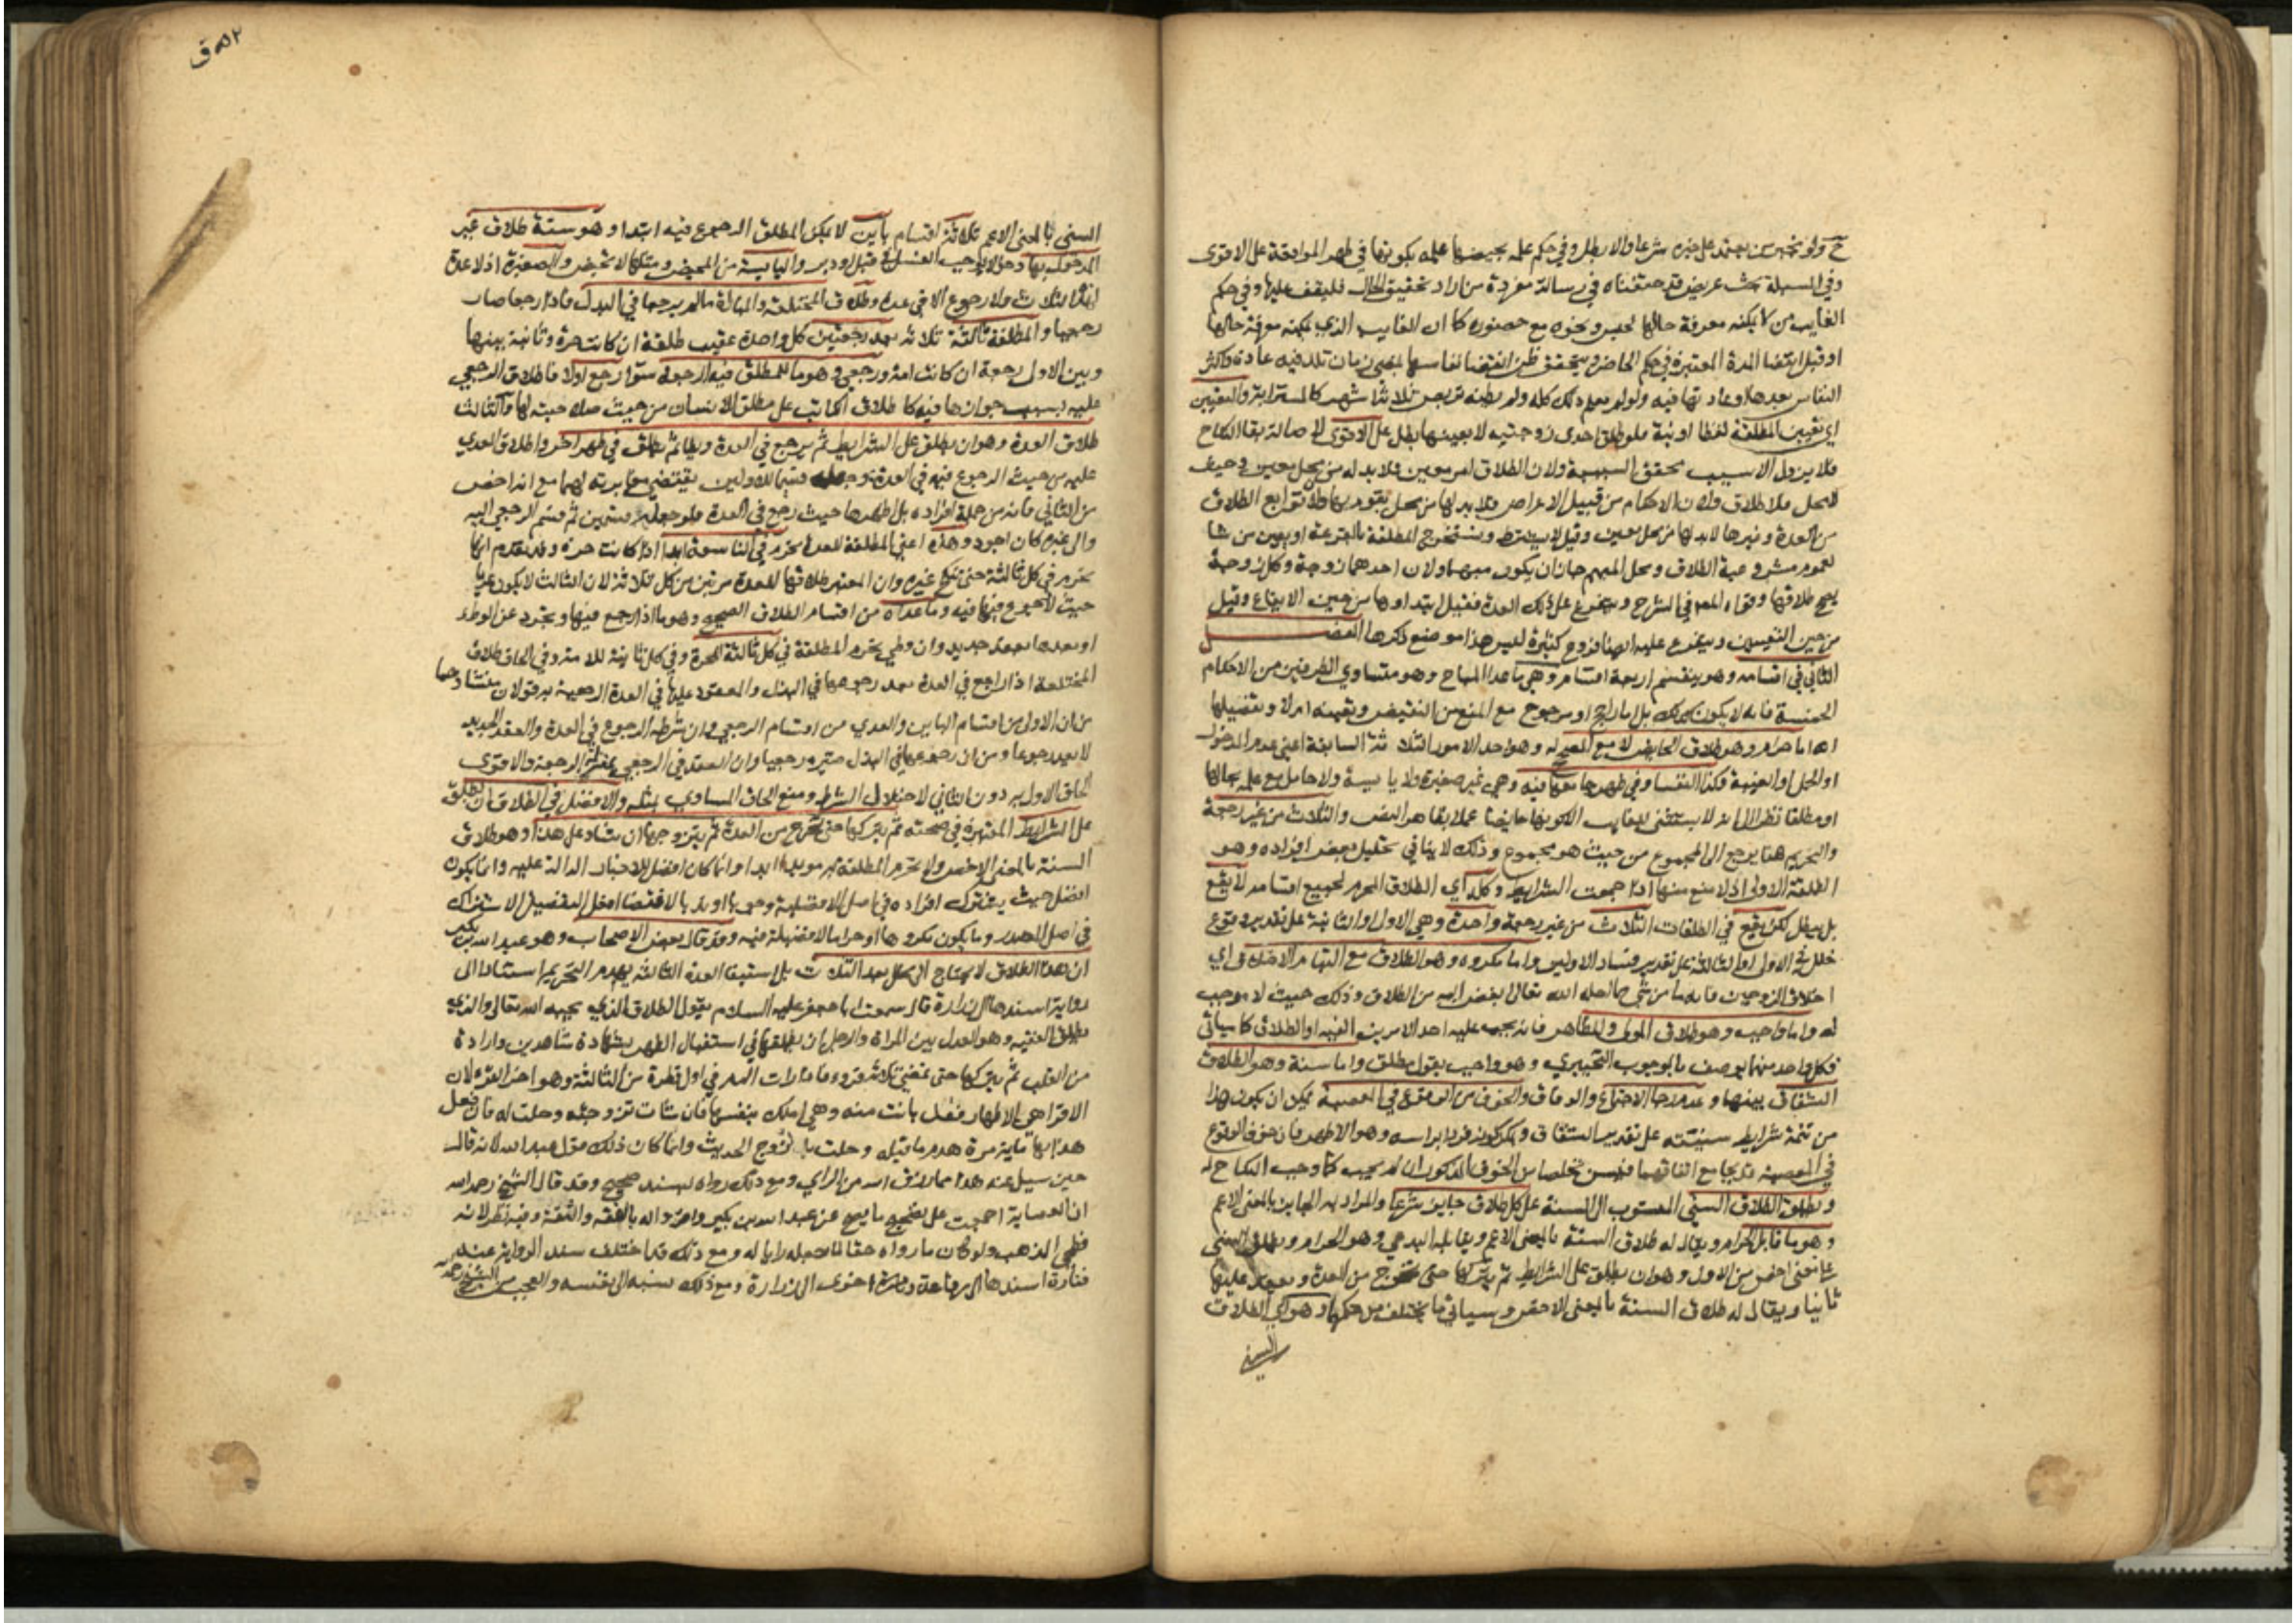 ح ولو بخبر من يعتمد على خبره شرعا والا بطل وفي حكم علمه بحيضها علمه بكونها في طهر المواقعة على الاقوى
وفي المسيلة بحث عريض قد حققناه في رسالة مفردة من اراد تحقيق الحال فليقف عليها وفي حكم
الغايب من لا يمكنه معرفة حالها لحبس ونحوه مع حضوره كما ان الغايب الذي يمكنه معرفة حالها
او قبل انقضا المدة المعتبرة في حكم الحاضر ويتحقق ظن انقضا نفاسها بمضي زمان تلد فيه عادة واكثر
النفاس بعدها او عادتها فيه ولو لم يعلم ذلك كله ولم يظنه تربص ثلاثة اشهر كالمسترابة والتعيين
اي تعيين المطلقة لفظا او نية فلو طلق احدى زوجتيه لا بعينها بطل على الاقوى لاصالة بقا النكاح
فلا يزول الا بسبب محقق السببية ولان الطلاق امر معين فلا بد له من محل معين وحيث
لا محل فلا طلاق ولان الاحكام من قبيل الاعراض فلا بد لها من محل يقوم بها ولا توابع الطلاق
من العدة وغيرها لا بد لها من محل معين وقيل لا يشترط ويستخرج المطلقة بالقرعة او يعين من شا
لعموم مشروعية الطلاق ومحل المبهم جاز ان يكون مبهما ولان احدهما زوجة وكل زوجة
يصح طلاقها وقواه المص في الشرح ويتفرع على ذلك العدة فقيل ابتداوها من حين الايقاع وقيل
من حين التعيين ويتفرع عليه ايضا فروع كثيرة ليس هذا موضع ذكرها الفصل
الثاني في اقسامه وهو ينقسم اربعة اقسام وهي ما عدا المباح وهو متساوي الطرفين من الاحكام
الخمسة فانه لا يكون كذلك بل اما راجح او مرجوح مع المنع من النقيض وتعينه ام لا وتفصيلها
انه اما حرام وهو طلاق الحايض لا مع المصحح له وهو احد الامور الثلاثة السابقة اعني عدم الدخول
او الحمل او الغيبة وكذا النفسا وفي طهر جامعها فيه وهي غير صغيرة ولا يايسة ولا حامل مع علمه بحالها
او مطلقا نظرا الى انه لا يستثنى للغايب الا كونها حايضا عملا بظاهر النص والثلاث من غير رجعة
والتحريم هنا يرجع الى المجموع من حيث هو مجموع وذلك لا ينافي تحليل بعض افراده وهو
الطلقة الاولى اذ لا منع منها اذا جمعت الشرايط وكله اي الطلاق المحرم لجميع اقسامه لا يقع
بل يبطل لكن يقع في الطلقات الثلاث من غير رجعة واحدة وهي الاولى او الثانية على تقدير وقوع
خلل في الاولى او الثالثة على تقدير فساد الاوليين واما مكروه وهو الطلاق مع التيام الاخلاق اي
اخلاق الزوجين فانه ما من شي مما احله الله تعالى ابغض اليه من الطلاق وذلك حيث لا موجب
له واما واجب وهو طلاق المولي والمظاهر فانه يجب عليه احد الامرين الفيه او الطلاق كما سياتي
فكل واحد منهما يوصف بالوجوب التخييري وهو واجب بقول مطلق واما سنة وهو الطلاق
الشقاق بينهما وعدم رجا الاجتماع والوفاق والخوف من الوقوع في المعصية يمكن ان يكون هذا
من تتمة شرايط سنيته على تقدير الشقاق ويمكن كونه فردا براسه وهو الاظهر فان خوف الوقوع
في المعصية قد يجامع اتفاقهما فيسن تخلصا من الخوف المذكور ان لم يجب كما وجب النكاح له
ويطلق الطلاق السني المنسوب الى السنة على كل طلاق جايز شرعا والمراد به الجايز بالمعنى الاعم
وهو ما قابل الحرام ويقال له طلاق السنة بالمعنى الاعم ويقابله البدعي وهو الحرام ويطلق السني
على معنى اخص من الاول وهو ان يطلق على الشرايط ثم يتركها حتى تخرج من العدة ويعقد عليها
ثانيا ويقال له طلاق السنة بالمعنى الاخص وسياتي ما يختلف من حكمها وهو اي الطلاق
السني
٥٢ ق
السني بالمعنى الاعم ثلاثة اقسام باين لا يمكن المطلق الرجوع فيه ابتدا وهو ستة طلاق غير
المدخول بها دخولا يوجب الغسل في قبل او دبر واليايسة من المحيض ومثلها لا تحيض والصغيرة اذ لا عدة
لهذه الثلاث ولا رجوع الا في عدة وطلاق المختلعة والمباراة ما لم يرجعا في البذل فاذا رجعا صار
رجعيا والمطلقة ثالثة ثلاثة بعد رجعتين كل واحدة عقيب طلقة ان كانت حرة وثانية بينها
وبين الاول رجعة ان كانت امة ورجعي وهو ما للمطلق فيه الرجعة سوا رجع اولا فاطلاق الرجعي
عليه بسبب جوازها فيه كاطلاق الكاتب على مطلق الانسان من حيث صلاحيته لها والثالث
طلاق العدة وهو ان يطلق على الشرايط ثم يرجع في العدة ويطا ثم يطلق في طهر اخر واطلاق العدي
عليه من حيث الرجوع فيه في العدة وجعله قسيما للاولين يقتضي مغايرته لهما مع انه اخص
من الثاني فانه من جملة افراده بل اظهرها حيث رجع في العدة فلو جعله قسمين ثم قسم الرجعي اليه
والى غيره كان اجود وهذه اعني المطلقة للعدة تحرم في التاسعة ابدا اذا كانت حرة وقد تقدم انها
تحرم في كل ثالثة حتى تنكح غيره وان المعتبر طلاقها للعدة مرتين من كل ثلاثة لان الثالث لا يكون عديا
حيث لا رجوع فيها فيه وما عداه من اقسام الطلاق الصحيح وهو ما اذا رجع فيها وتجرد عن الوطء
او بعدها بعقد جديد وان وطي تحرم المطلقة في كل ثالثة للحرة وفي كل ثانية للامة وفي الحاق طلاق
المختلعة اذا راجع في العدة بعد رجوعها في البذل والمعقود عليها في العدة الرجعية به قولان منشاوهما
من ان الاولى من اقسام الباين والعدي من اقسام الرجعي وان شرطه الرجوع في العدة والعقد الجديد
لا يعد رجوعا ومن ان رجوعها في البذل صيره رجعيا وان العقد في الرجعي بمنزلة الرجعة والاقوى
الحاق الاولى به دون الثاني لاختلال الشرط ومنع الحاق المساوي بمثله والافضل في الطلاق ان يطلق
على الشرايط المعتبرة في صحته ثم يتركها حتى تخرج من العدة ثم يتزوجها ان شا وعلى هذا وهو طلاق
السنة بالمعنى الاخص ولا تحرم المطلقة به مويدا ابدا وانما كان افضل للاخبار الدالة عليه وانما يكون
افضل حيث يشترك افراده في اصل الافضلية وجوبا او ندبا لاقتضا افعل التفضيل الاشتراك
في اصل المصدر وما يكون مكروها او حراما لا فضيلة فيه وقد قال بعض الاصحاب وهو عبد الله بن بكير
ان هذا الطلاق لا يحتاج الى محلل بعد الثلاث بل استيفا العدة الثالثة يهدم التحريم استنادا الى
رواية اسندها الى زرارة قال سمعت ابا جعفر عليه السلام يقول الطلاق الذي يحبه الله تعالى والذي
يطلق الفقيه وهو العدل بين المراة والرجل ان يطلقها في استقبال الطهر بشهادة شاهدين وارادة
من القلب ثم يتركها حتى تمضي ثلاثة قروء فاذا رات الدم في اول قطرة من الثالثة وهو اخر القرء لان
الاقرا هي الاطهار فقد بانت منه وهي املك بنفسها فان شات تزوجته وحلت له فان فعل
هذا بها ماية مرة هدم ما قبله وحلت بلا زوج الحديث وانما كان ذلك قول عبد الله لانه قال
حين سيل عنه هذا مما رزق الله من الراي ومع ذلك رواه بسند صحيح وقد قال الشيخ رحمه الله
ان العصابة اجمعت على تصحيح ما يصح عن عبد الله بن بكير واقروا له بالفقه والثقة وفيه نظر لانه
فطحي المذهب ولو كان ما رواه حقا لما جعله رايا له ومع ذلك فقد اختلف سند الرواية عنه
فتارة اسندها الى رفاعة وتارة اخرى الى زرارة ومع ذلك نسبه الى نفسه والعجب من الشيخ رحمه الله